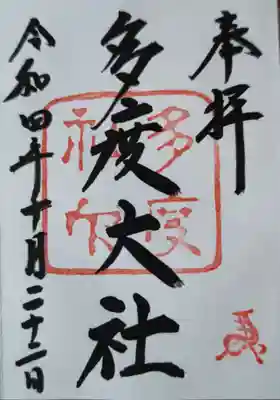 奉拝
多度大社
令和四年十月二十二日
多度